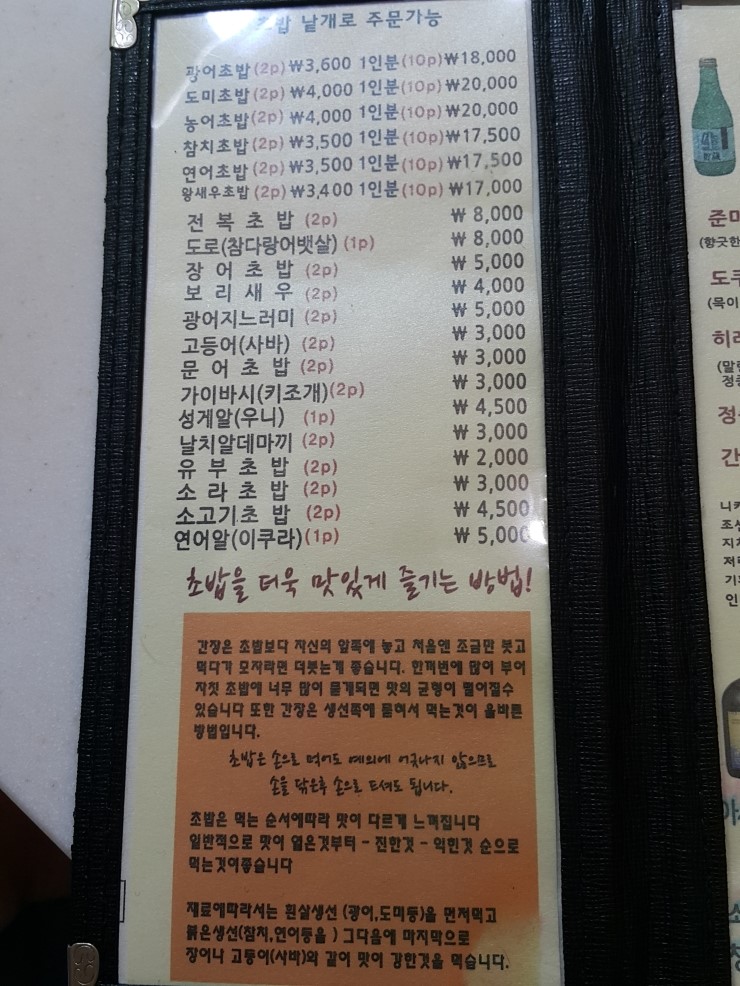 초밥 낱개로 주문가능
광어초밥(2p) ₩3,600 1인분(10p)₩18,000
도미초밥(2p) ₩4,000 1인분(10p)₩20,000
농어초밥(2p) ₩4,000 1인분(10p)₩20,000
참치초밥(2p) ₩3,500 1인분(10p)₩17,500
연어초밥(2p) ₩3,500 1인분(10p)₩17,500
왕새우초밥(2p) ₩3,400 1인분(10p)₩17,000
전 복 초 밥 (2p) ₩ 8,000
도로(참다랑어뱃살) (1p) ₩ 8,000
장 어 초 밥 (2p) ₩ 5,000
보 리 새 우 (2p) ₩ 4,000
광어지느러미 (2p) ₩ 5,000
고등어(사바) (2p) ₩ 3,000
문 어 초 밥 (2p) ₩ 3,000
가이바시(키조개)(2p) ₩ 3,000
성게알(우니) (1p) ₩ 4,500
날치알데마끼 (2p) ₩ 3,000
유 부 초 밥 (2p) ₩ 2,000
소 라 초 밥 (2p) ₩ 3,000
소고기초 밥 (2p) ₩ 4,500
연어알(이쿠라)(1p) ₩ 5,000
초밥을 더욱 맛있게 즐기는 방법!
간장은 초밥보다 자신의 앞쪽에 놓고 처음엔 조금만 붓고
먹다가 모자라면 더붓는게 좋습니다. 한꺼번에 많이 부어
자칫 초밥에 너무 많이 묻게되면 맛의 균형이 떨어질수
있습니다 또한 간장은 생선쪽에 묻혀서 먹는것이 올바른
방법입니다.
초밥은 손으로 먹어도 예의에 어긋나지 않으므로
손을 닦은후 손으로 드셔도 됩니다.
초밥은 먹는 순서에따라 맛이 다르게 느껴집니다
일반적으로 맛이 엷은것부터 - 진한것 - 익힌것 순으로
먹는것이좋습니다
재료에따라서는 흰살생선 (광어,도미등)을 먼저먹고
붉은생선(참치,연어등을 ) 그다음에 마지막으로
장어나 고등어(사바)와 같이 맛이 강한것을 먹습니다.
준마
(향긋한
(목이
정
간
니카
조선
인